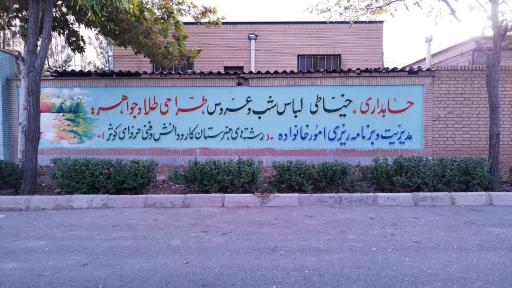 حسابداری، خیاطی لباس شب و عروس، طراحی طلا و جواهر و
مدیریت و برنامه ریزی امور خانواده . (رشته‌های هنرستان کار و دانش فنی حرفه‌ای کوثر).